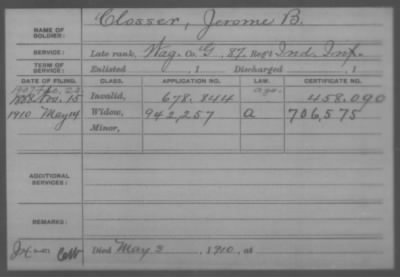 NAME OF SOLDIER: Closser, Jerome B.
SERVICE: Late rank, Wag. Co. G, 87 Reg't Ind. Inf.
TERM OF SERVICE: Enlisted , 1 Discharged , 1
DATE OF FILING. CLASS. APPLICATION NO. LAW. CERTIFICATE NO.
1907 Feb. 23 age.
1888 Nov. 15 Invalid, 678.844 458.090
1910 May 14 Widow, 942,257 a 706,575
Minor,
ADDITIONAL SERVICES:
REMARKS:
Died May 3, 1910, at